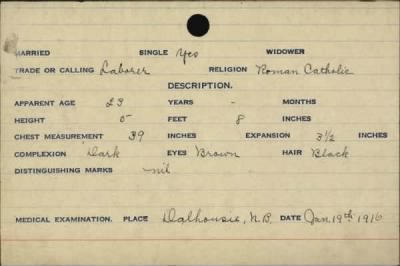 MARRIED SINGLE Yes WIDOWER
TRADE OR CALLING Laborer RELIGION Roman Catholic
DESCRIPTION.
APPARENT AGE 23 YEARS - MONTHS
HEIGHT 5 FEET 8 INCHES
CHEST MEASUREMENT 39 INCHES EXPANSION 3½ INCHES
COMPLEXION Dark EYES Brown HAIR Black
DISTINGUISHING MARKS nil
MEDICAL EXAMINATION. PLACE Dalhousie, N.B. DATE Jan. 19th 1916